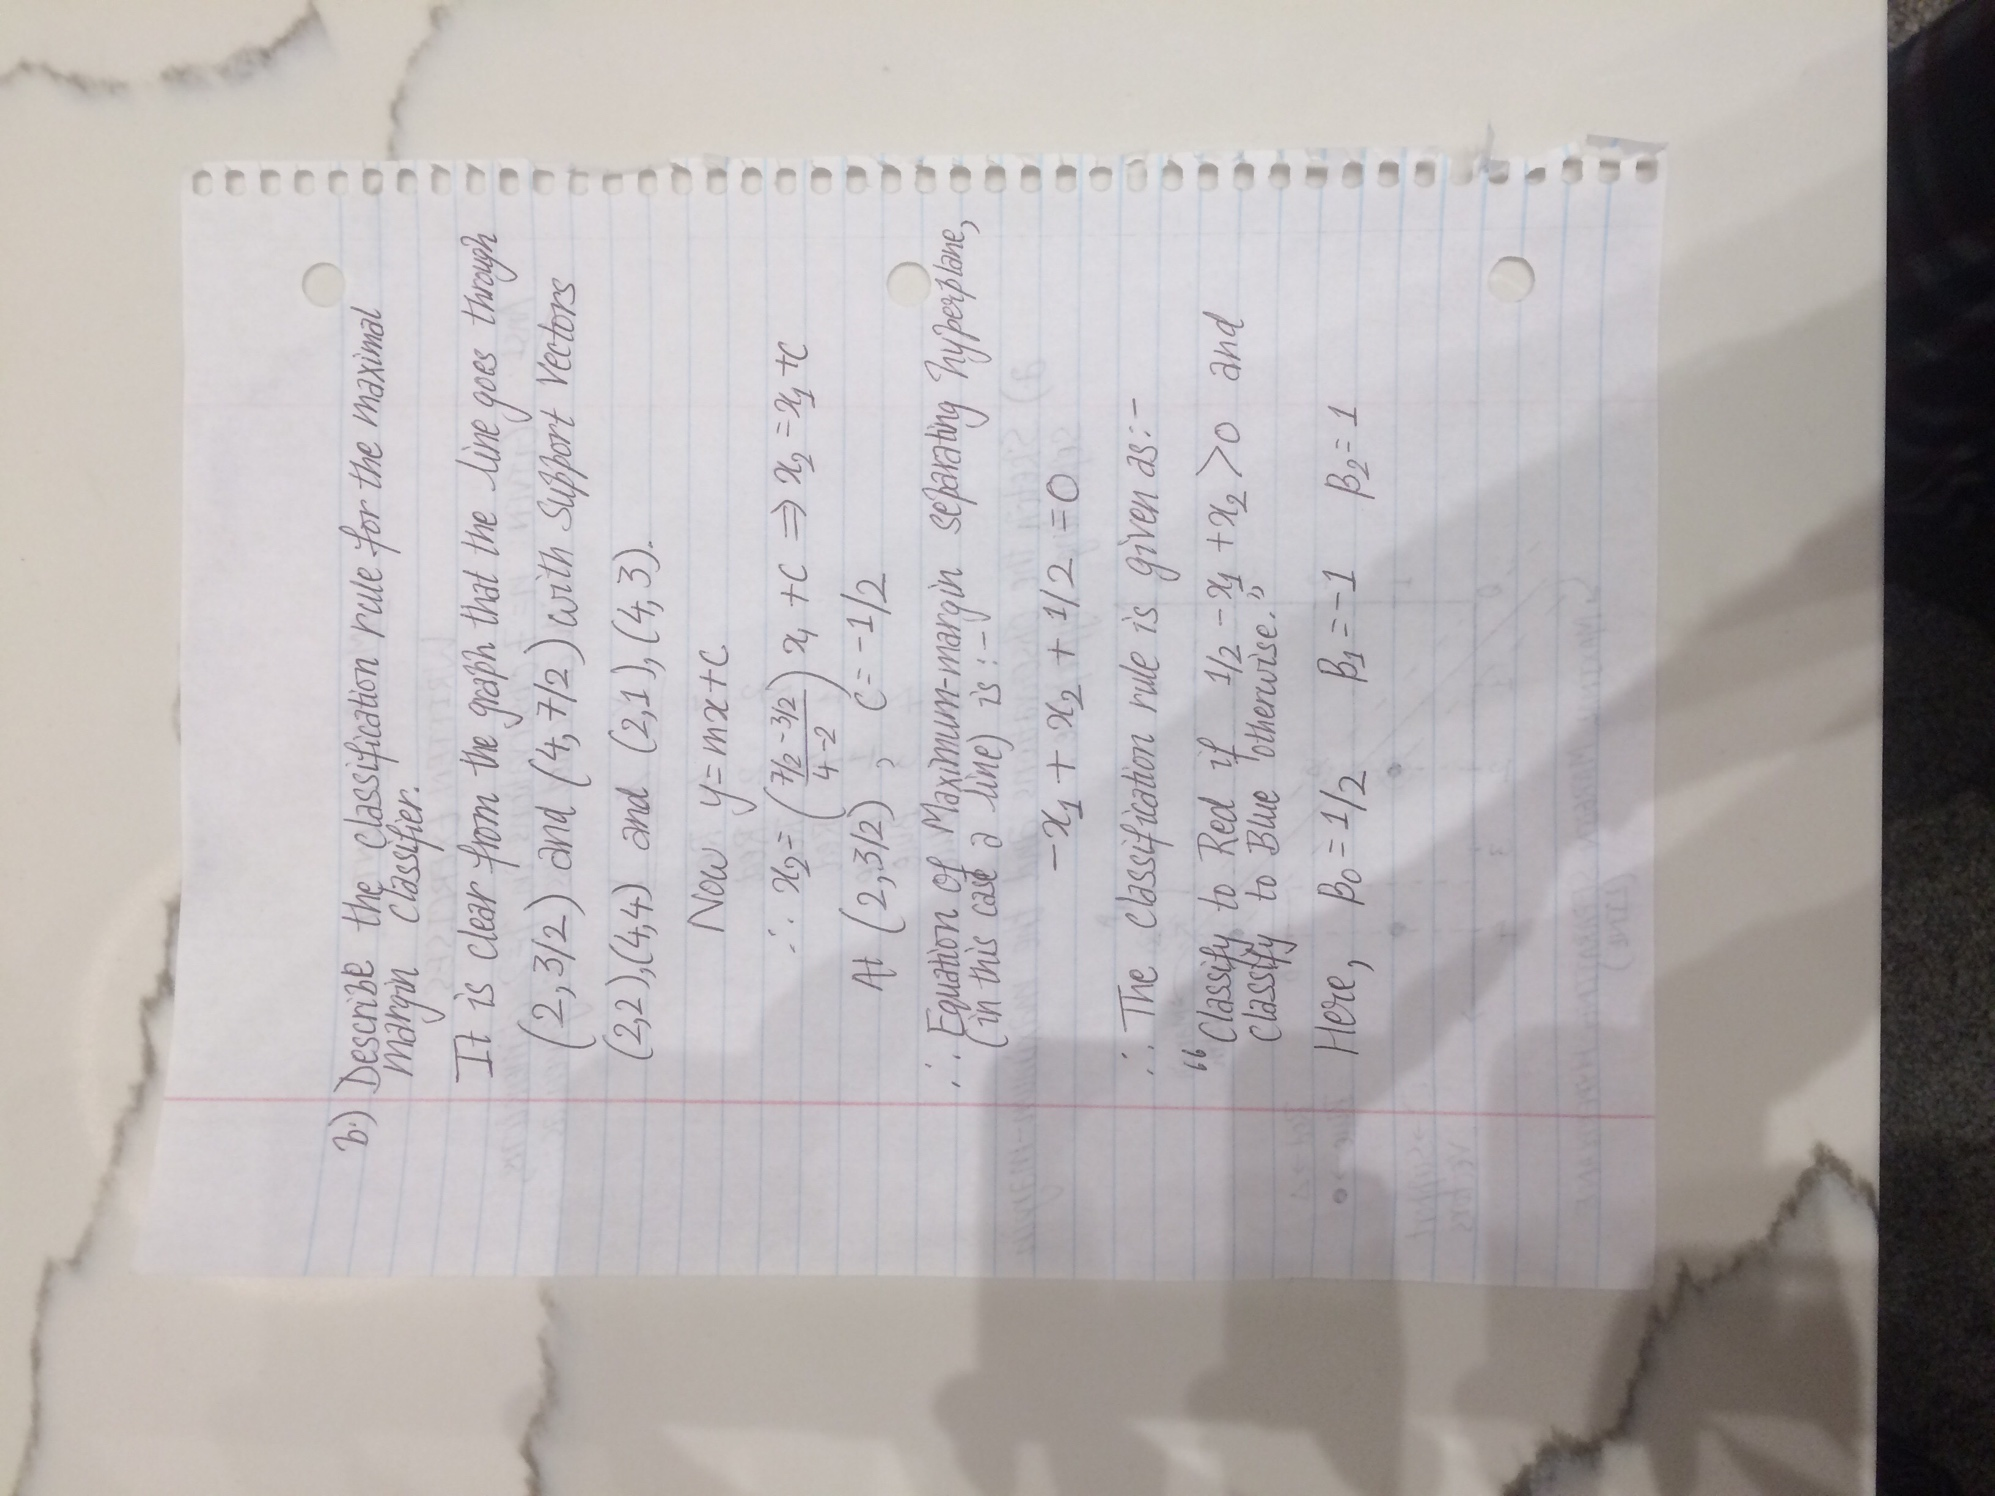 b.) Describe the classification rule for the maximal
margin classifier.
It is clear from the graph that the line goes through
(2,3/2) and (4,7/2) with support vectors
(2,2),(4,4) and (2,1),(4,3).
Now y=mx+c
∴ x₂=((7/2-3/2)/(4-2))x₁+c ⇒ x₂=x₁+c
At (2,3/2), c=-1/2
∴ Equation of Maximum-margin separating hyperplane,
(in this case a line) is:-
-x₁+x₂+1/2=0
∴ The classification rule is given as:-
"Classify to Red if 1/2-x₁+x₂>0 and
classify to Blue otherwise."
Here, β₀=1/2 β₁=-1 β₂=1